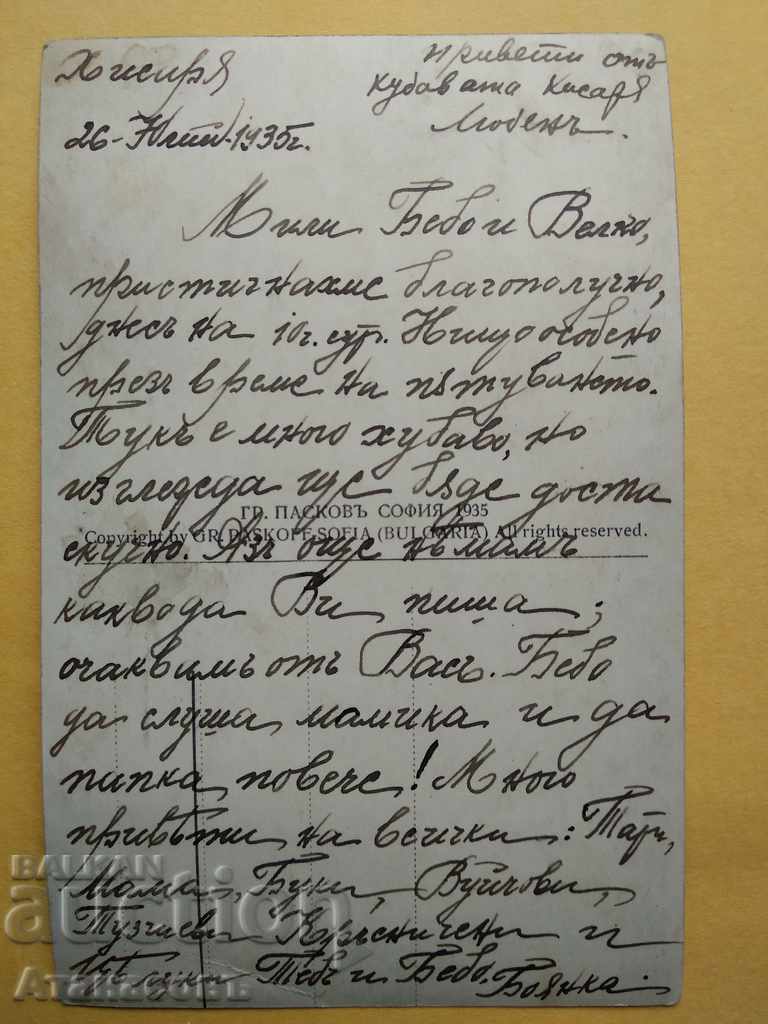 Хисиря
26-Юлий-1935г.
Привети отъ
хубавата Хисаря
Любенъ.
Мили Бебо и Велко,
пристигнахме благополучно,
днесъ на 10 ч. сут. Нищо особено
презъ време на пѫтуването.
Тукъ е много хубаво, но
изглежда ще бѫде доста
скучно. Азъ още нѣмамъ
какво да Ви пиша;
очаквамъ отъ Васъ. Бебо
да слуша мамичка и да
папка повече! Много
привѣти на всички: Тати,
Мама, Буки, Вуйчови,
и
Тебъ и Бебо. Боянка.
ГР. ПАСКОВЪ СОФИЯ 1935
Copyright by GR. PASKOFF-SOFIA (BULGARIA) All rights reserved.
BALKAN
auction
Атанасовъ